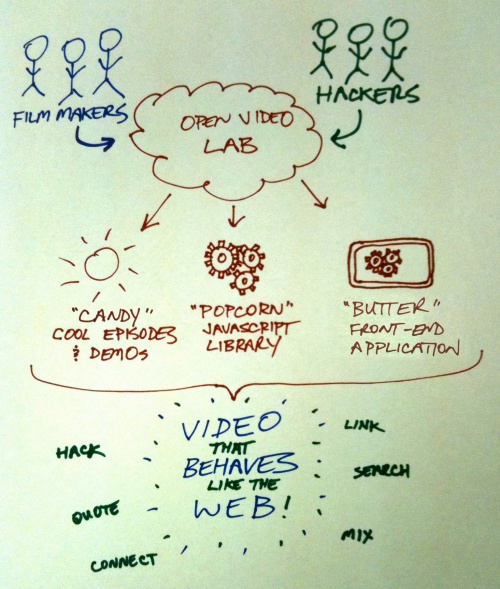 FILM MAKERS
HACKERS
OPEN VIDEO
LAB
"CANDY"
COOL EPISODES
& DEMOS
"POPCORN"
JAVASCRIPT
LIBRARY
"BUTTER"
FRONT-END
APPLICATION
VIDEO
THAT
BEHAVES
LIKE THE
WEB!
HACK
QUOTE
CONNECT
LINK
SEARCH
MIX